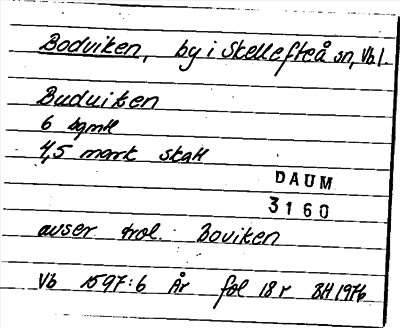 Bodviken, by i Skellefteå sn, Vbl.
Buduiken
6 bgmk
4,5 mark skatt
DAUM
3160
avser trol. Boviken
Vb 1597:6 År fol 18r BH 1976